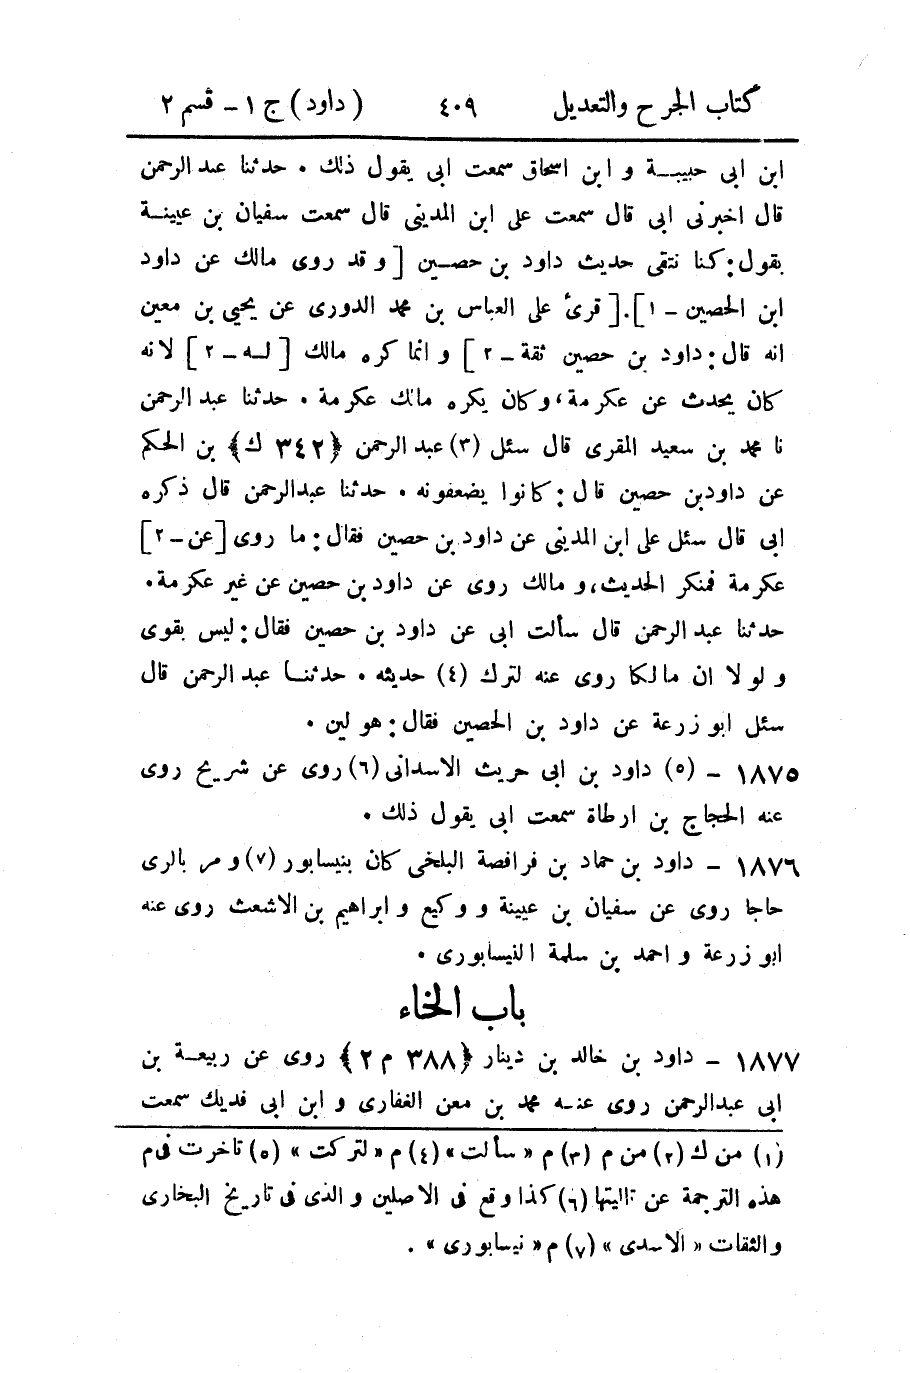 كتاب الجرح والتعديل ٤٠٩ (داود) ج ١ - قسم ٢
ابن ابى حبيبة و ابن اسحاق سمعت ابى يقول ذلك . حدثنا عبد الرحمن
قال اخبرنى ابى قال سمعت على ابن المدينى قال سمعت سفيان بن عيينة
يقول: كنا نتقى حديث داود بن حصين [ و قد روى مالك عن داود
ابن الحصين - ١ ] . [ قرئ على العباس بن محمد الدورى عن يحيى بن معين
انه قال: داود بن حصين ثقة - ٢ ] و انما كره مالك [ له - ٢ ] لانه
كان يحدث عن عكرمة، وكان يكره مالك عكرمة . حدثنا عبد الرحمن
نا محمد بن سعيد المقرى قال سئل (٣) عبد الرحمن ﴿٣٤٢ ك﴾ بن الحكم
عن داود بن حصين قال: كانوا يضعفونه . حدثنا عبدالرحمن قال ذكره
ابى قال سئل على ابن المدينى عن داود بن حصين فقال: ما روى [عن - ٢]
عكرمة فمنكر الحديث، و مالك روى عن داود بن حصين عن غير عكرمة .
حدثنا عبد الرحمن قال سألت ابى عن داود بن حصين فقال: ليس بقوى
و لو لا ان مالكا روى عنه لترك (٤) حديثه . حدثنا عبد الرحمن قال
سئل ابو زرعة عن داود بن الحصين فقال: هو لين .
١٨٧٥ - (٥) داود بن ابى حريث الاسدانى (٦) روى عن شريح روى
عنه الحجاج بن ارطاة سمعت ابى يقول ذلك .
١٨٧٦ - داود بن حماد بن فرافصة البلخى كان بنيسابور (٧) و مر بالرى
حاجا روى عن سفيان بن عيينة و وكيع و ابراهيم بن الاشعث روى عنه
ابو زرعة و احمد بن سلمة النيسابورى .
باب الخاء
١٨٧٧ - داود بن خالد بن دينار ﴿٣٨٨ م ٢﴾ روى عن ربيعة بن
ابى عبدالرحمن روى عنه محمد بن معن الغفارى و ابن ابى فديك سمعت
(١) من ك (٢) من م (٣) م « سألت » (٤) م « لتركت » (٥) تاخرت فى م
هذه الترجمة عن تاليتها (٦) كذا وقع فى الاصلين و الذى فى تاريخ البخارى
والثقات « الاسدى » (٧) م « نيسابورى » .